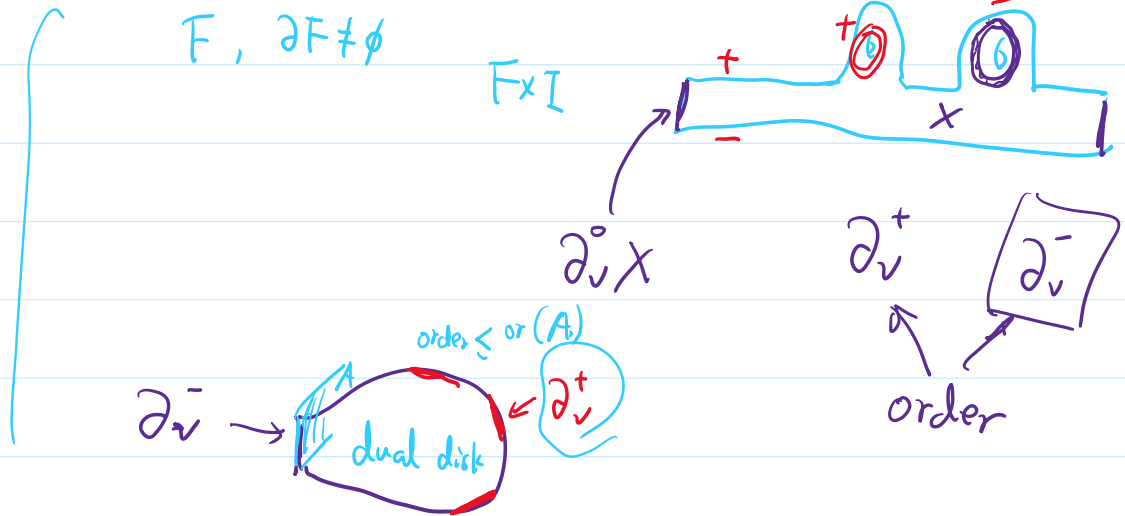 F, ∂F ≠ ∅
F×I
+
+
−
−
X
∂ᵥ°X
∂ᵥ⁺
∂ᵥ⁻
order
order ≤ or (A)
∂ᵥ⁻
A
∂ᵥ⁺
dual disk